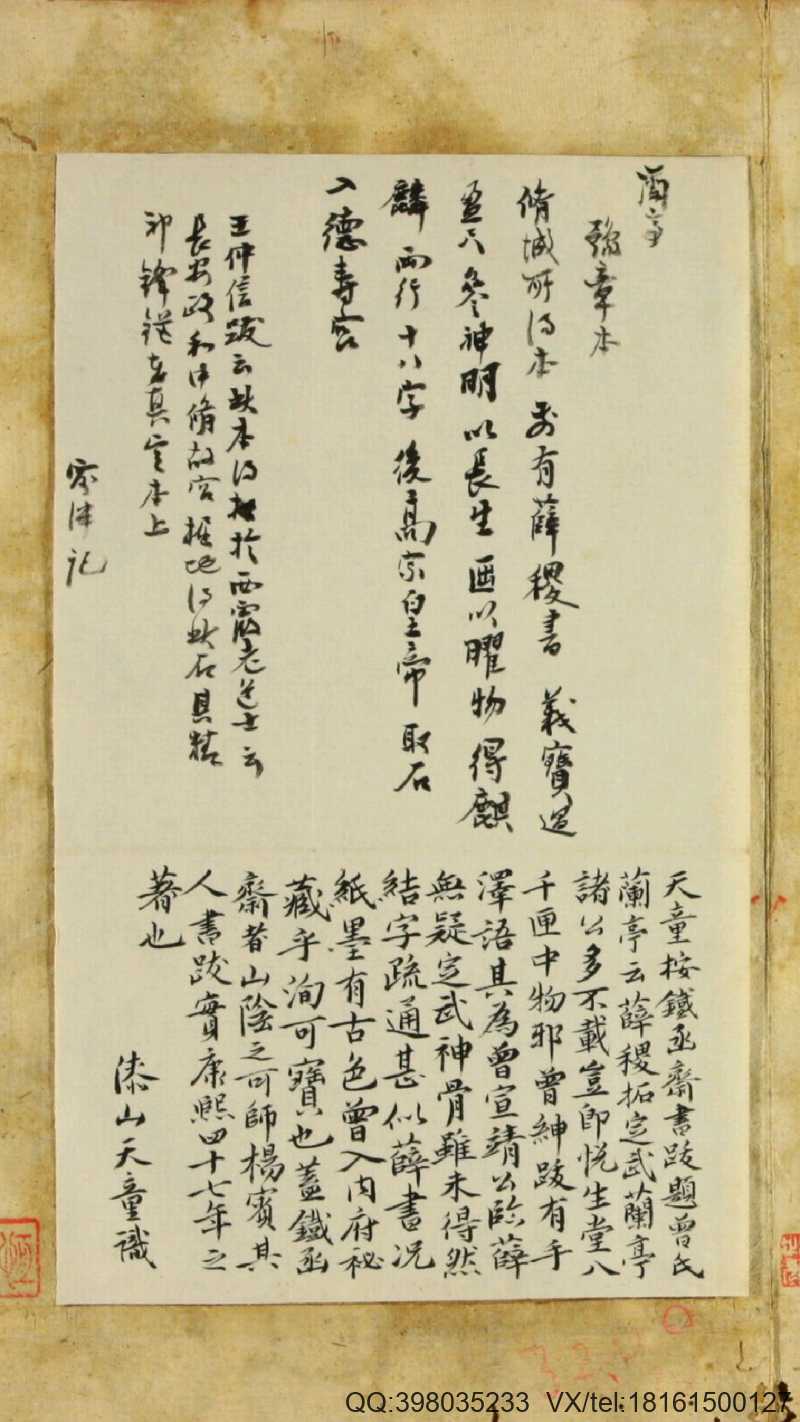 蘭亭
章本
脩城所得本 前有薛稷書 義寶過
盈尺參神明以長生 匣以曜物得麒
麟 兩行十八字 後高宗皇帝取石
入德壽宮
王仲信跋云此本得於西霞老道士云
長安政和中脩故宮掘地得此石具
印鋒鋩在真定本上
記
天童按鐵函齋書跋題曾氏
蘭亭云薛稷拓定武蘭亭
諸公多不載豈即悅生堂八
千匣中物耶曾紳跋有手
澤語其為曾宣靖公臨薛
無疑定武神骨雖未得然
結字疏通甚似薛書況
紙墨有古色曾入內府祕
藏乎洵可寶也蓋鐵函
齋者山陰之可師楊賓其
人書跋實康熙四十七年之
著也
漆山天童識
QQ:398035233 VX/tel:18161500127